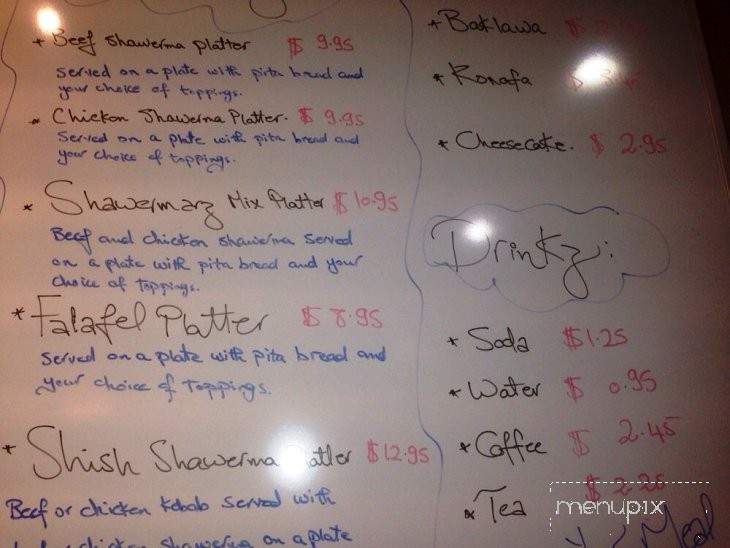 * Beef Shawerma Platter $ 9.95
Served on a plate with pita bread and
your choice of toppings.
* Chicken Shawerma Platter. $ 9.95
Served on a plate with pita bread and
your choice of toppings.
* Shawermarz Mix Platter $ 10.95
Beef and chicken shawerma served
on a plate with pita bread and your
choice of toppings.
* Falafel Platter $ 8.95
Served on a plate with pita bread and
your choice of toppings.
* Shish Shawerma $ 12.95
Beef or chicken kebab served with
chicken shawerma on a plate
* Baklawa $
* Konafa $
* Cheesecake. $ 2.95
Drinkz:
* Soda $1.25
* Water $ 0.95
* Coffee $ 2.45
* Tea $ 2.25
menupix
Meal